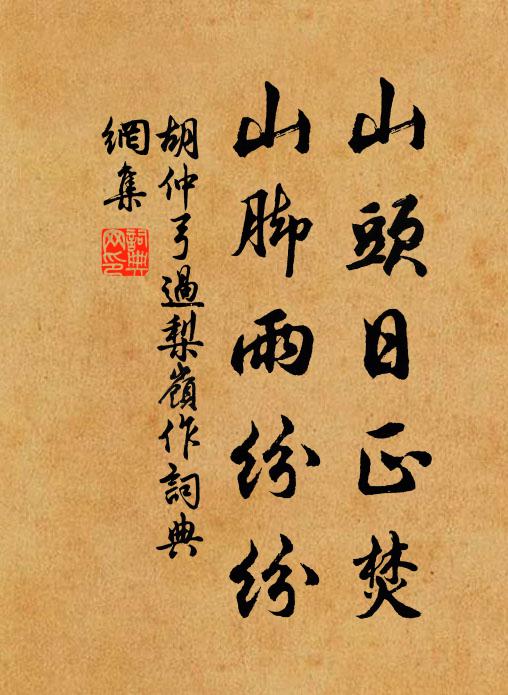 山頭日正焚
山脚雨紛紛
胡仲弓過梨嶺作詞典
網集
詞典
网印